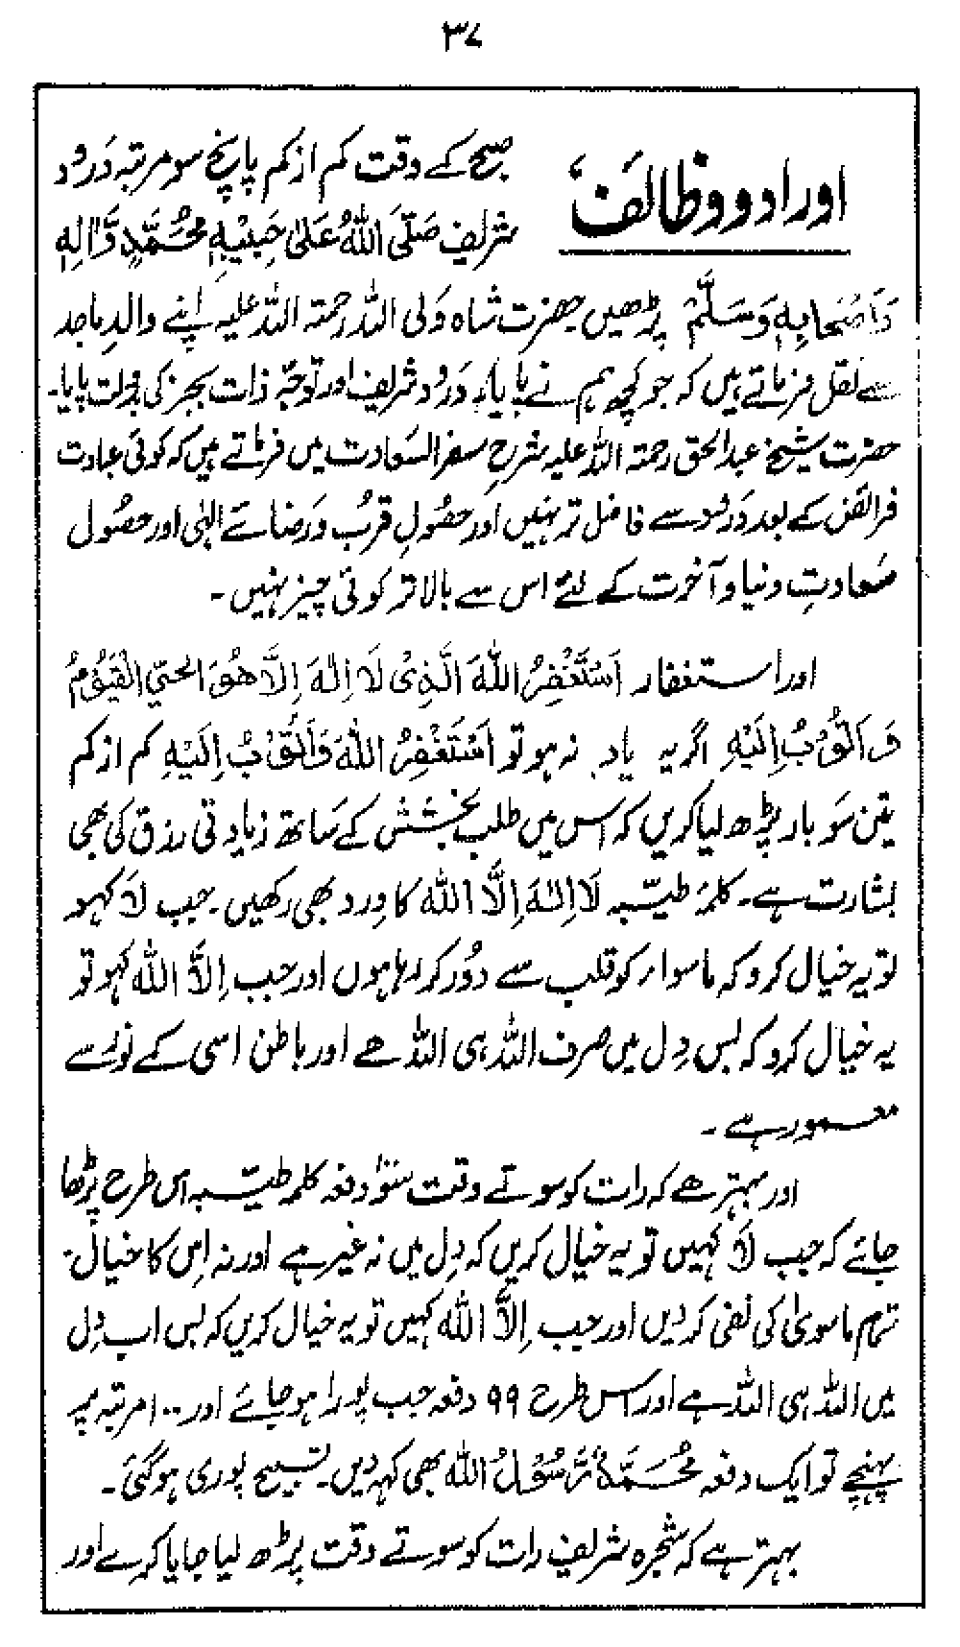 ۳۷
اوراد و وظائف
صبح کے وقت کم از کم پانچ سو مرتبہ دَرود
شریف صَلَّی اللّٰہُ عَلٰی حَبِیْبِہٖ مُحَمَّدٍ وَّاٰلِہٖ
وَاَصْحَابِہٖ وَسَلَّمْ پڑھیں۔ حضرت شاہ وَلی اللہ رحمتہ اللہ علیہ اپنے والدِ ماجد
سے نقل فرماتے ہیں کہ جو کچھ ہم نے پایا، دَرود شریف اور توجّہ ذات بجز کی بدولت پایا۔
حضرت شیخ عبدالحق رحمتہ اللہ علیہ شرح سفر السّعادت میں فرماتے ہیں کہ کوئی عبادت
فرائض کے بعد دَرود سے فاضل تر نہیں اور حصُولِ قربُ و رَضائے الٰہی اور حصُول
سَعادتِ دنیا و آخرت کے لئے اس سے بالا تر کوئی چیز نہیں۔
اور استغفار اَسْتَغْفِرُ اللّٰہَ الَّذِیْ لَا اِلٰہَ اِلَّا ھُوَ الْحَیُّ الْقَیُّوْمُ
وَ اَتُوْبُ اِلَیْہِ اگر یہ یاد نہ ہو تو اَسْتَغْفِرُ اللّٰہَ وَاَتُوْبُ اِلَیْہِ کم از کم
تین سَو بار پڑھ لیا کریں کہ اس میں طلب بخشش کے سَاتھ زیادتی رزق کی بھی
بشارت ہے۔ کلمۂ طیّبہ لَا اِلٰہَ اِلَّا اللّٰہ کا وِرد بھی رکھیں۔ جب لَا کہو
تو یہ خیال کرو کہ ماسواء کو قلب سے دوُر کر رہا ہوں اور جب اِلَّا اللّٰہ کہو تو
یہ خیال کرو کہ بس دِل میں صرف اللہ ہی اللہ ھے اور باطن اسی کے نوُر سے
معمور ہے۔
اور بہتر ھے کہ رات کو سوتے وقت سَوا دفعہ کلمہ طیّبہ اس طرح پڑھا
جائے کہ جب لَا کہیں تو یہ خیال کریں کہ دِل میں نہ غیر ہے اور نہ اِس کا خیال۔
تمام ماسویٰ کی نفی کر دیں اور جب اِلَّا اللّٰہ کہیں تو یہ خیال کریں کہ بس اب دِل
میں اللہ ہی اللہ ہے اور اس طرح ۹۹ دفعہ جب پوُرا ہو جائے اور ۱۰۰ مرتبہ پر
پہنچے تو ایک دفعہ مُحَمَّدٌ رَّسُوْلُ اللّٰہ بھی کہہ دیں۔ تسبیح پوری ہو گئی۔
بہتر ہے کہ شجرہ شریف رات کو سوتے وقت پڑھ لیا جایا کرے اور